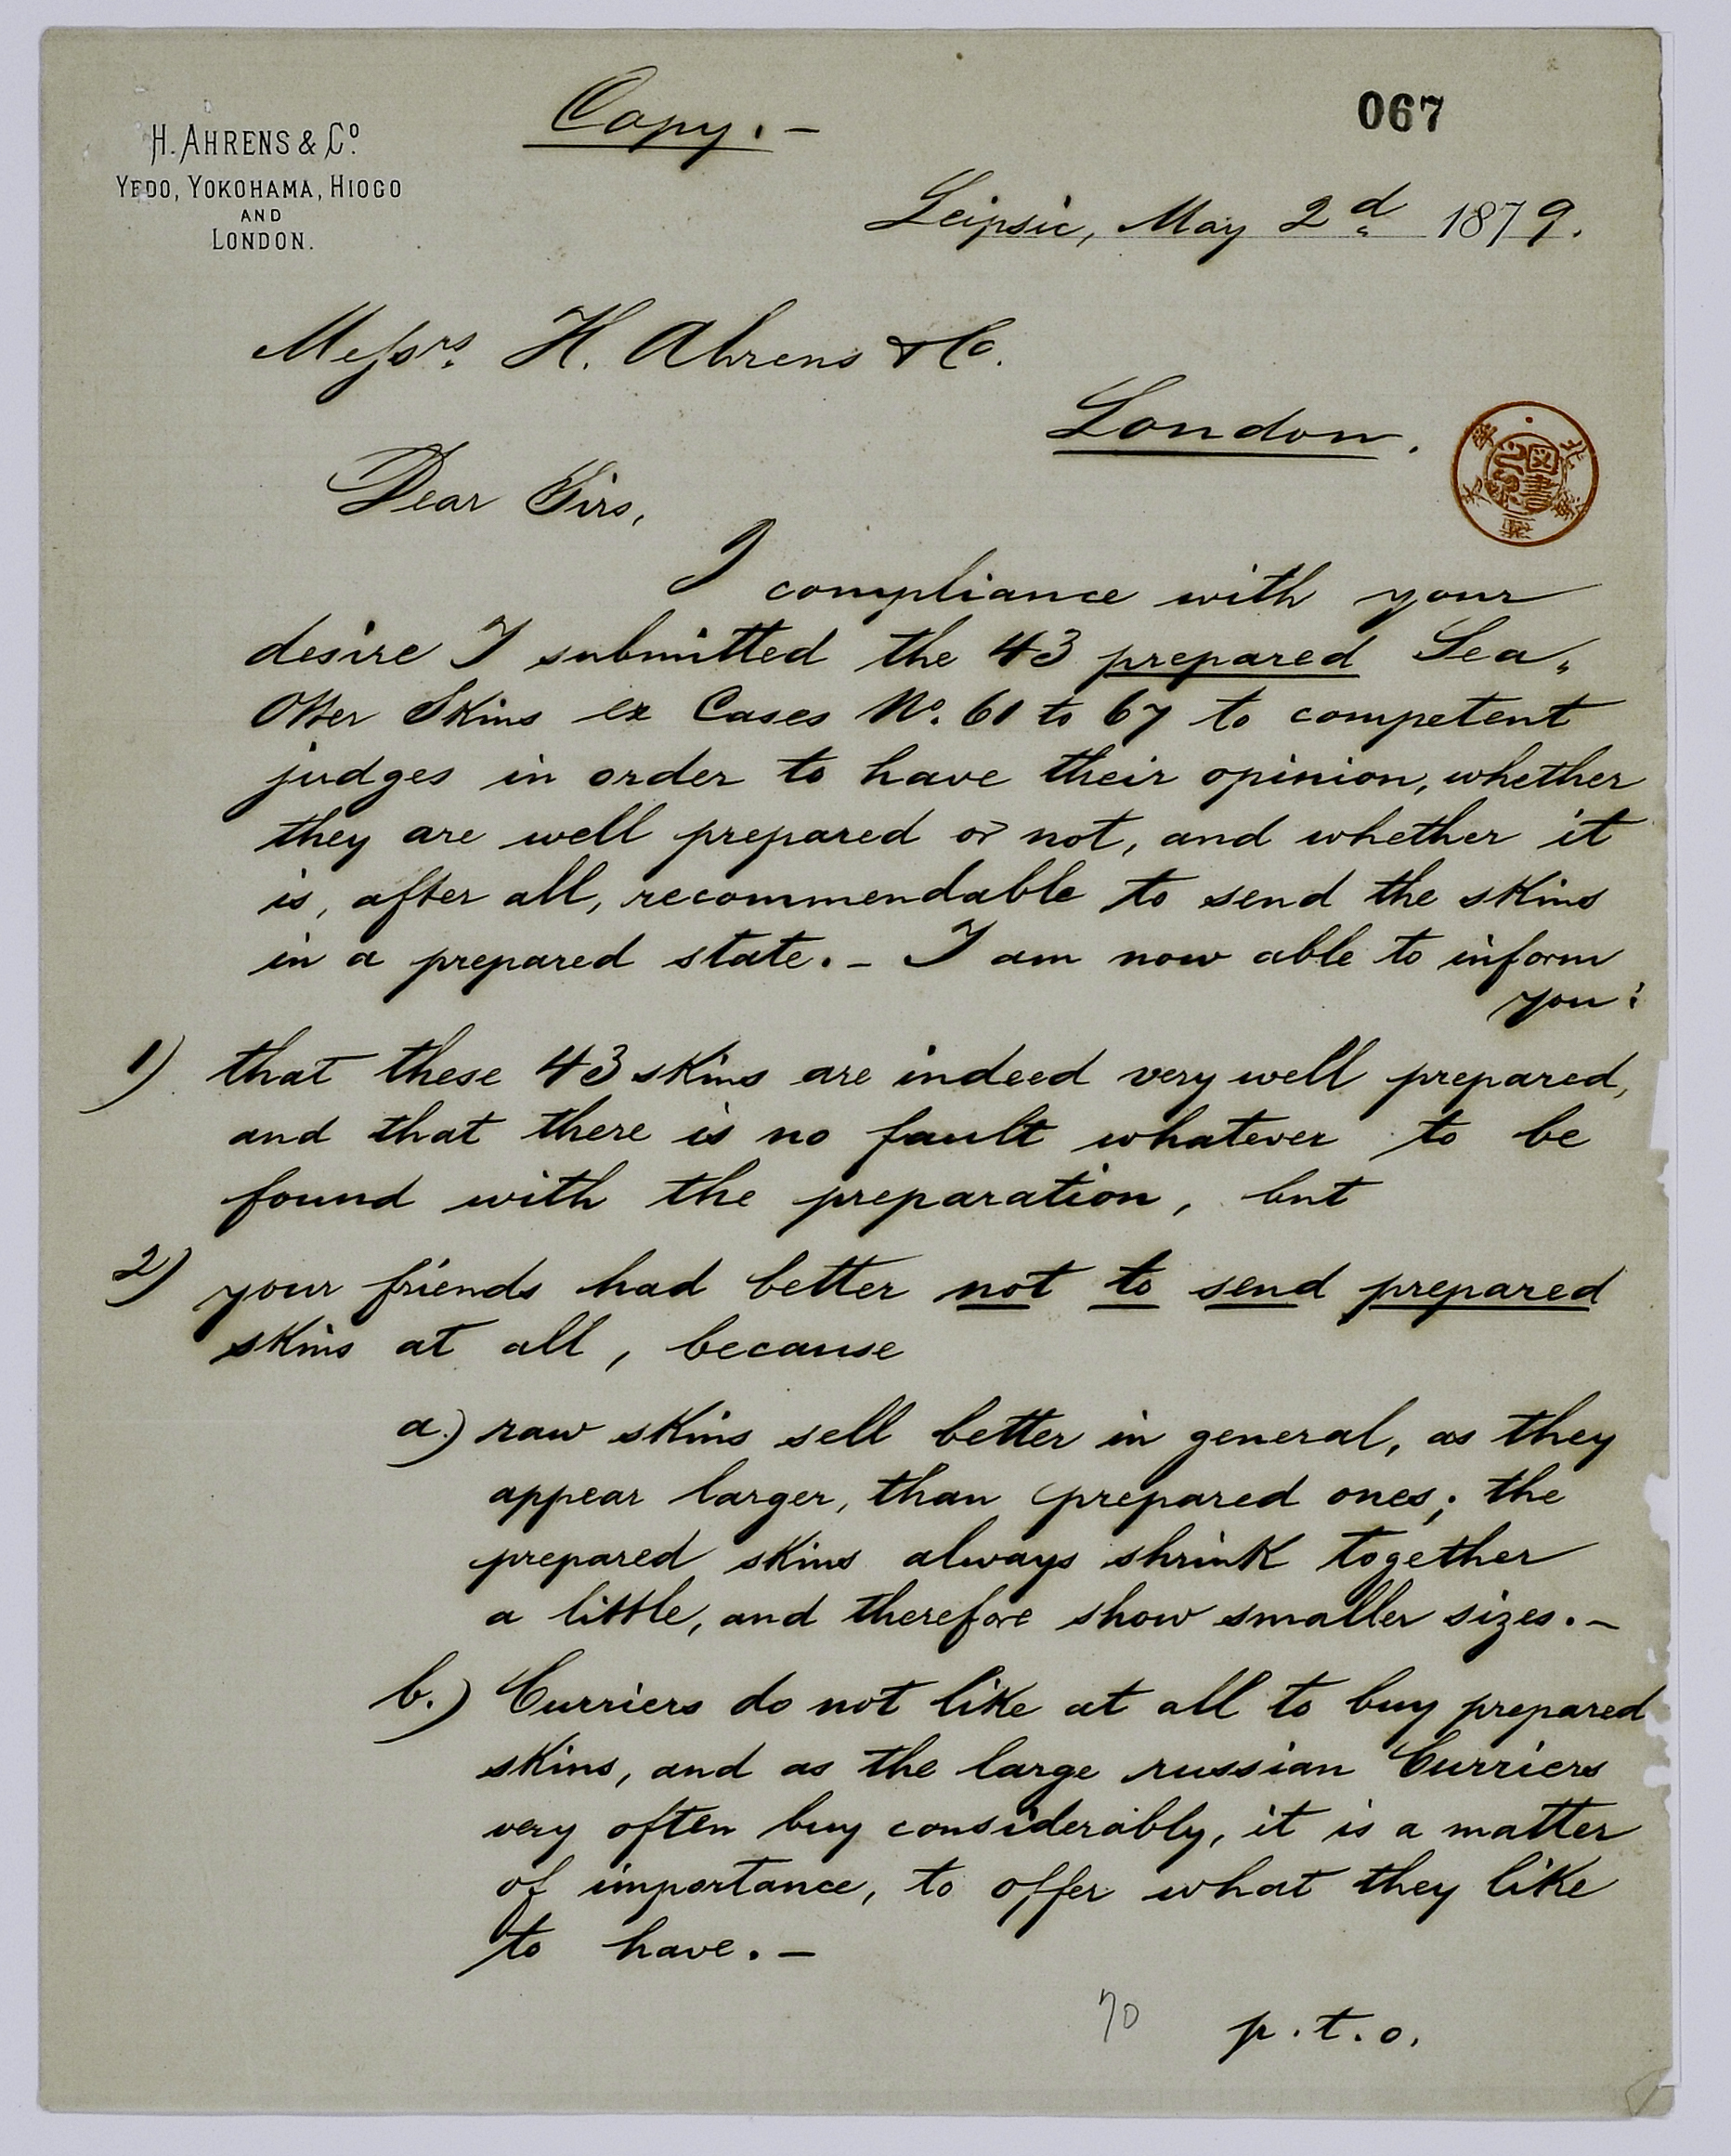 067
H. AHRENS & Co.
YEDO, YOKOHAMA, HIOGO
AND
LONDON.
Copy. -
Leipsic, May 2d 1879.
Messrs. H. Ahrens & Co.
London.
Dear Sirs,
I compliance with your
desire I submitted the 43 prepared Sea„
Otter Skins ex Cases No. 61 to 67 to competent
judges in order to have their opinion, whether
they are well prepared or not, and whether it
is, after all, recommendable to send the skins
in a prepared state. - I am now able to inform
you:
1) that these 43 skins are indeed very well prepared,
and that there is no fault whatever to be
found with the preparation, but
2) your friends had better not to send prepared
skins at all, because
a.) raw skins sell better in general, as they
appear larger, than prepared ones; the
prepared skins always shrink together
a little, and therefore show smaller sizes. -
b.) Curriers do not like at all to buy prepared
skins, and as the large russian Curriers
very often buy considerably, it is a matter
of importance, to offer what they like
to have. -
70
p.t.o.